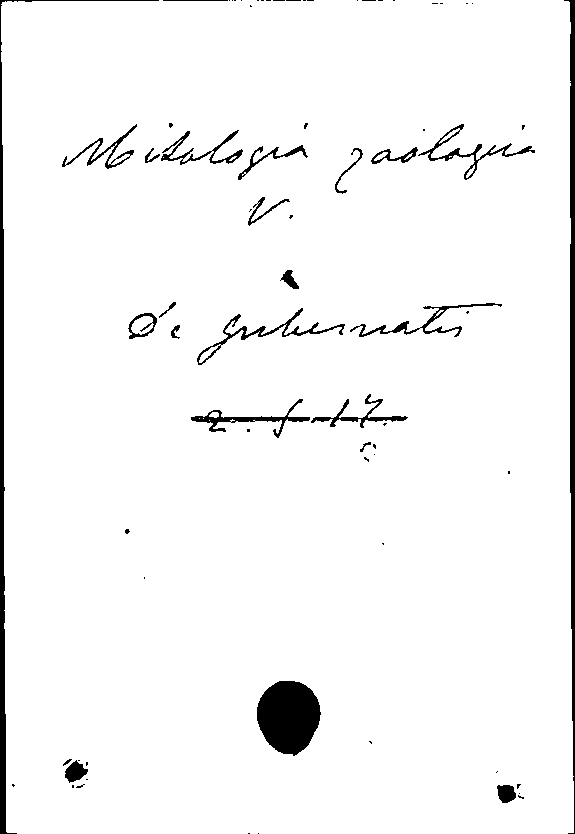 Mitologia zoologica
V.
De Gubernatis
2.5.17.